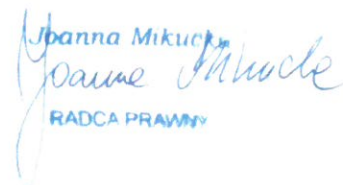 Joanna Mikucka
Joanna Mikucka
RADCA PRAWNY